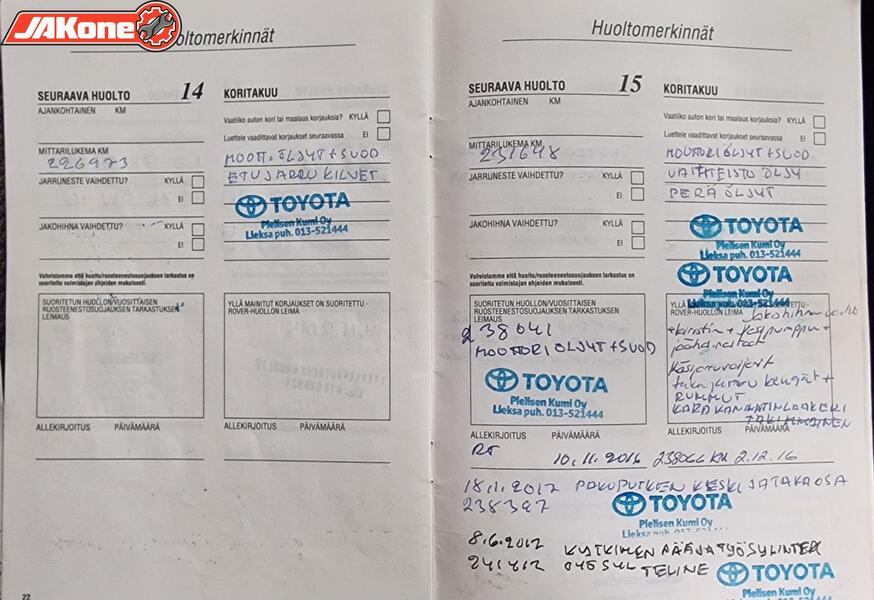 JAKone
Huoltomerkinnät
SEURAAVA HUOLTO 14
AJANKOHTAINEN KM
MITTARILUKEMA KM
226973
JARRUNESTE VAIHDETTU? KYLLÄ
EI
JAKOHIHNA VAIHDETTU? KYLLÄ
EI
Vahvistamme että huolto/ruosteenestosuojauksen tarkastus on
suoritettu valmistajan ohjeiden mukaisesti.
SUORITETUN HUOLLON/VUOSITTAISEN
RUOSTEENESTOSUOJAUKSEN TARKASTUKSEN
LEIMAUS
ALLEKIRJOITUS PÄIVÄMÄÄRÄ
KORITAKUU
Vaatiiko auton kori tai maalaus korjauksia? KYLLÄ
Luettele vaadittavat korjaukset seuraavassa EI
MOOTT. ÖLJYT + SUOD
ETUJARRU KILVET
TOYOTA
Pielisen Kumi Oy
Lieksa puh. 013-521444
YLLÄ MAINITUT KORJAUKSET ON SUORITETTU -
ROVER-HUOLLON LEIMA
ALLEKIRJOITUS PÄIVÄMÄÄRÄ
22
Huoltomerkinnät
SEURAAVA HUOLTO 15
AJANKOHTAINEN KM
MITTARILUKEMA KM
231648
JARRUNESTE VAIHDETTU? KYLLÄ
EI
JAKOHIHNA VAIHDETTU? KYLLÄ
EI
Vahvistamme että huolto/ruosteenestosuojauksen tarkastus on
suoritettu valmistajan ohjeiden mukaisesti.
SUORITETUN HUOLLON/VUOSITTAISEN
RUOSTEENESTOSUOJAUKSEN TARKASTUKSEN
LEIMAUS
238041
MOOTTORI ÖLJYT + SUOD
TOYOTA
Pielisen Kumi Oy
Lieksa puh. 013-521444
ALLEKIRJOITUS PÄIVÄMÄÄRÄ
10.11.2016
KORITAKUU
Vaatiiko auton kori tai maalaus korjauksia? KYLLÄ
Luettele vaadittavat korjaukset seuraavassa EI
MOOTTORI ÖLJYT + SUOD.
VAIHTEISTO ÖLJY
PERÄ ÖLJYT
TOYOTA
Pielisen Kumi Oy
Lieksa puh. 013-521444
TOYOTA
Pielisen Kumi Oy
Lieksa puh. 013-521444
ROVER-HUOLLON LEIMA Jakohihna
+ kiristin + vesipumppu +
jäähd.nesteet
Käsijarruvaijerit
takajarru kengät +
RUMMUT
ALLEKIRJOITUS PÄIVÄMÄÄRÄ
238066 KM 2.12.16
18.1.2017 PAKOPUTKEN KESKI JA TAKAOSA
238347
TOYOTA
Pielisen Kumi Oy
Lieksa puh. 013-521444
8.6.2017 KYTKIMEN PÄÄ JA TYÖSYLINTER
241412 TELINE
TOYOTA
Pielisen Kumi Oy